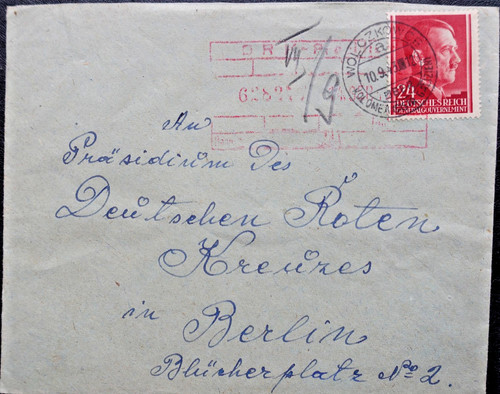 D R K
10.9.
24
DEUTSCHES REICH
GENERALGOUVERNEMENT
An
Präsidiŭm des
Deŭtschen Roten
Kreŭzes
in Berlin
Blücherplatz No 2.